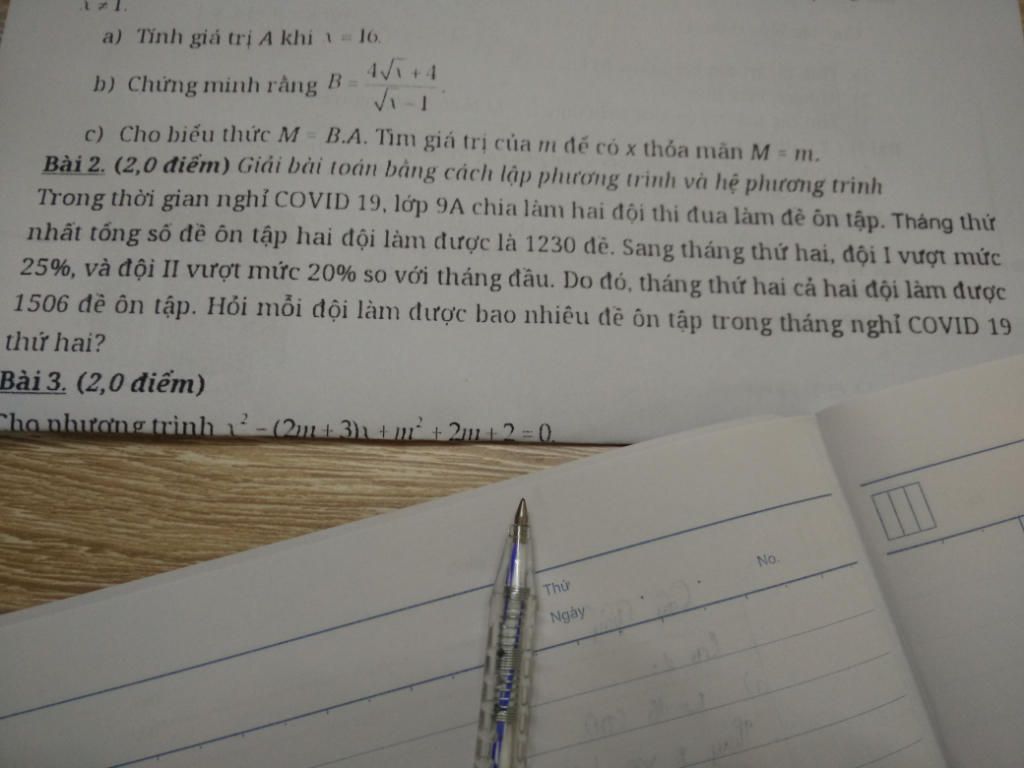 x ≠ 1.
a) Tính giá trị A khi x = 16.
b) Chứng minh rằng B = (4√x + 4)/(√x − 1).
c) Cho biểu thức M = B.A. Tìm giá trị của m để có x thỏa mãn M = m.
Bài 2. (2,0 điểm) Giải bài toán bằng cách lập phương trình và hệ phương trình
Trong thời gian nghỉ COVID 19, lớp 9A chia làm hai đội thi đua làm đề ôn tập. Tháng thứ
nhất tổng số đề ôn tập hai đội làm được là 1230 đề. Sang tháng thứ hai, đội I vượt mức
25%, và đội II vượt mức 20% so với tháng đầu. Do đó, tháng thứ hai cả hai đội làm được
1506 đề ôn tập. Hỏi mỗi đội làm được bao nhiêu đề ôn tập trong tháng nghỉ COVID 19
thứ hai?
Bài 3. (2,0 điểm)
Cho phương trình x² − (2m + 3)x + m² + 2m + 2 = 0.
Thứ
Ngày
No.